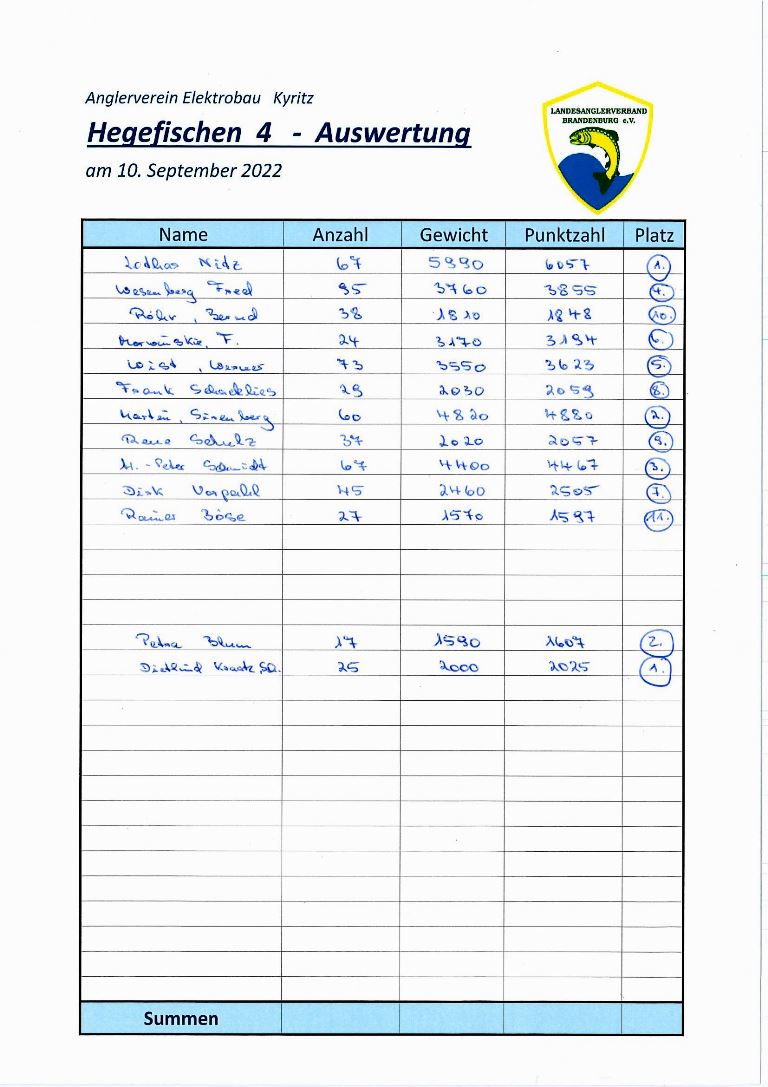 Anglerverein Elektrobau Kyritz
LANDESANGLERVERBAND
BRANDENBURG e.V.
Hegefischen 4 - Auswertung
am 10. September 2022
Name Anzahl Gewicht Punktzahl Platz
Lothar Nitz 67 5990 6057 1.
Wesenberg Fred 95 3760 3855 4.
Röhr, Bernd 38 1810 1848 10.
F. 24 3170 3194 6.
Wist, Werner 73 3550 3623 5.
Frank Schadlies 29 2030 2059 8.
Martin, Sirenberg 60 4820 4880 2.
Rene Schulz 37 2020 2057 9.
H.-Peter Schmidt 67 4400 4467 3.
Dirk Vorpahl 45 2460 2505 7.
Rainer Böse 27 1570 1597 11.
Petra Blum 17 1590 1607 2.
Dietlind Kraatz 25 2000 2025 1.
Summen